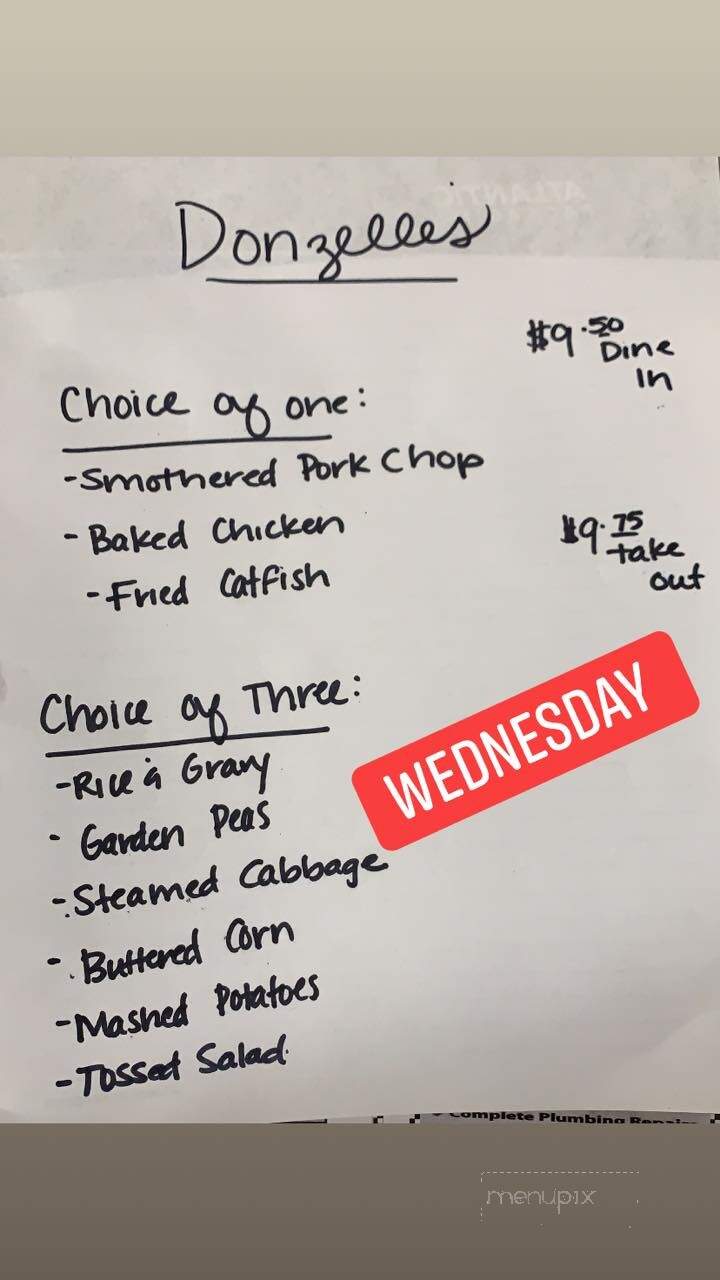 ATLANTIC
Donzelles
$9.50
Dine
In
Choice of one:
-Smothered Pork Chop
- Baked Chicken
- Fried Catfish
$9.75
take
out
Choice of Three:
WEDNESDAY
-Rice & Gravy
- Garden Peas
- Steamed Cabbage
- Buttered Corn
-Mashed Potatoes
-Tossed Salad
Complete Plumbing Repairs
menupix